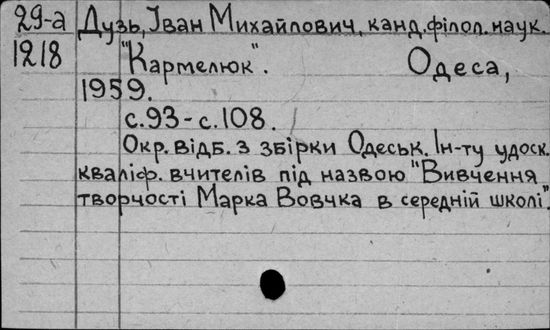 29-а Дузь, Іван Михайлович, канд. філол. наук.
1218 "Кармелюк". Одеса,
1959.
с. 93 - с. 108.
Окр. відб. з збірки Одеськ. Ін-ту удоск.
кваліф. вчителів під назвою "Вивчення
творчості Марка Вовчка в середній школі".